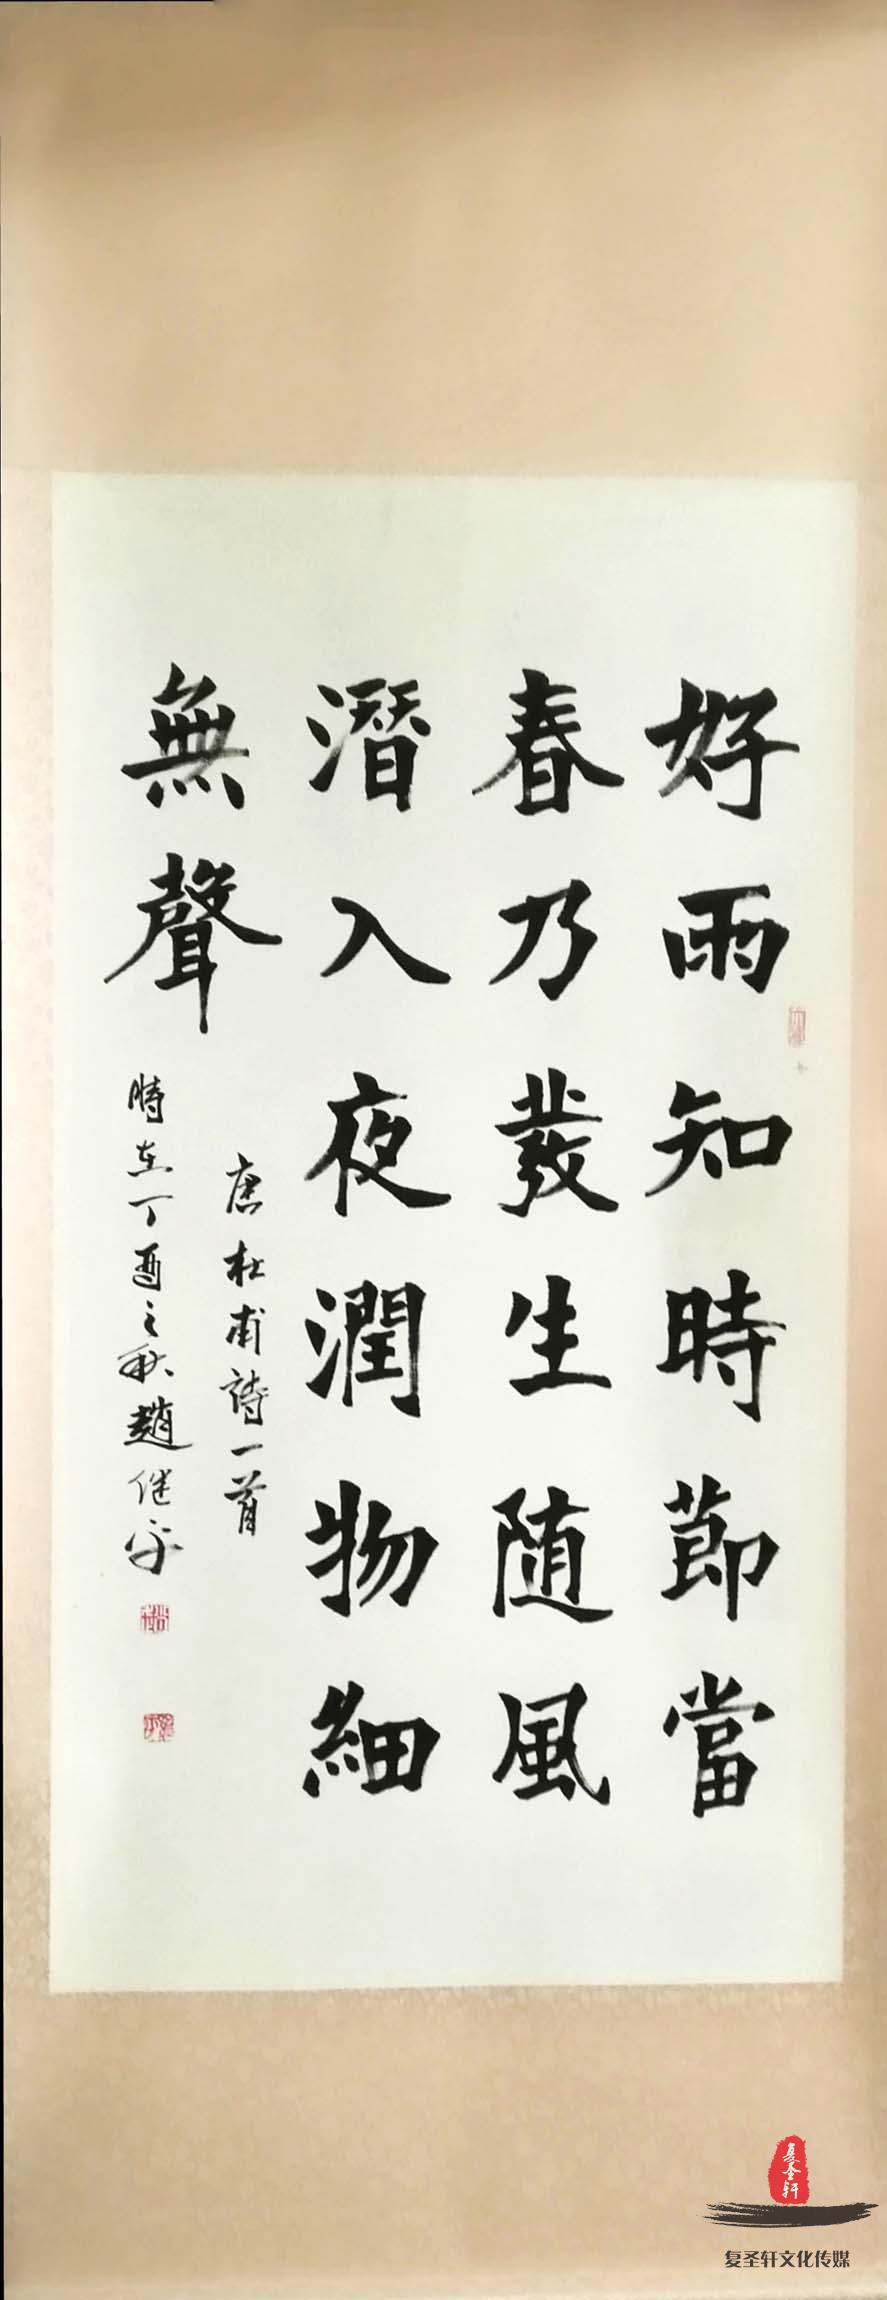 好雨知時節當
春乃發生随風
潛入夜潤物細
無聲
唐杜甫詩一首
時在丁酉之秋趙继平
复圣轩
复圣轩文化传媒